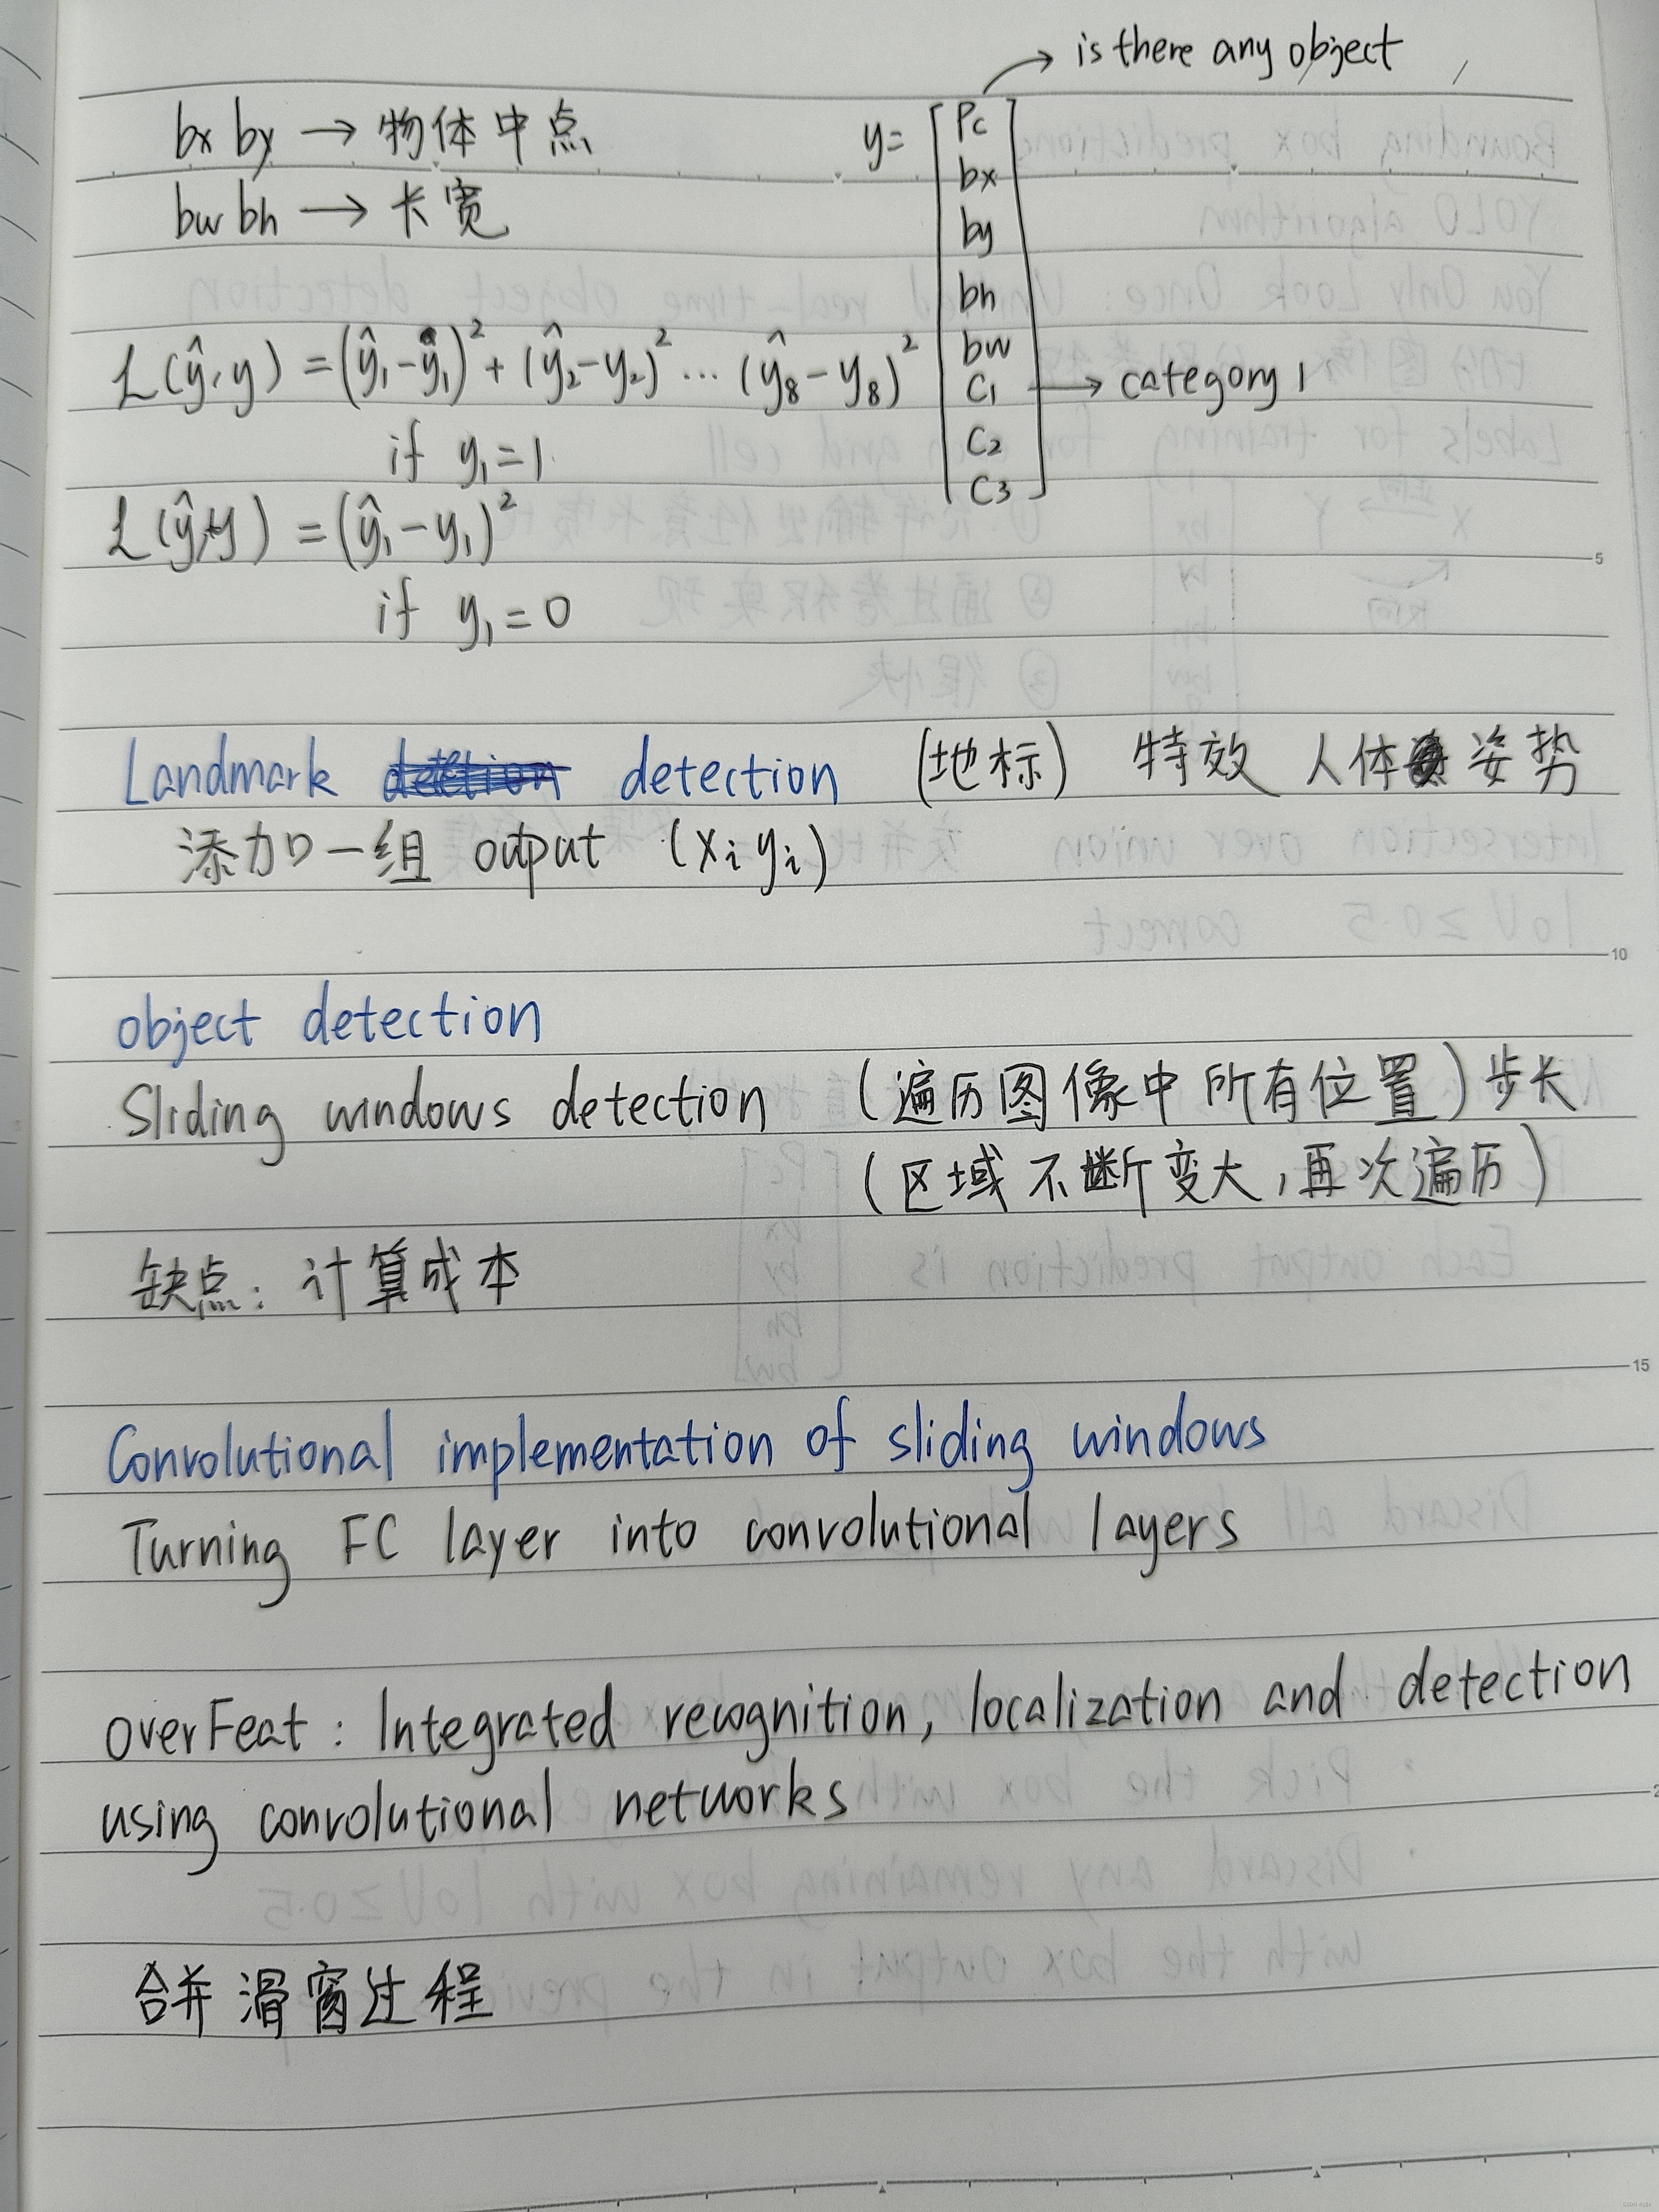 is there any object
bx by → 物体中点
bw bh → 长宽
y= [ Pc
bx
by
bh
bw
C1 → category 1
C2
C3 ]
L(ŷ, y) = (ŷ1 - y1)² + (ŷ2 - y2)² ... (ŷ8 - y8)²
if y1 = 1
L(ŷ, y) = (ŷ1 - y1)²
if y1 = 0
Landmark detection (地标) 特效 人体姿势
添加一组 output (xi yi)
object detection
Sliding windows detection (遍历图像中所有位置) 步长
(区域不断变大,再次遍历)
缺点: 计算成本
Convolutional implementation of sliding windows
Turning FC layer into convolutional layers
overFeat: Integrated recognition, localization and detection
using convolutional networks
合并滑窗过程
5
10
15